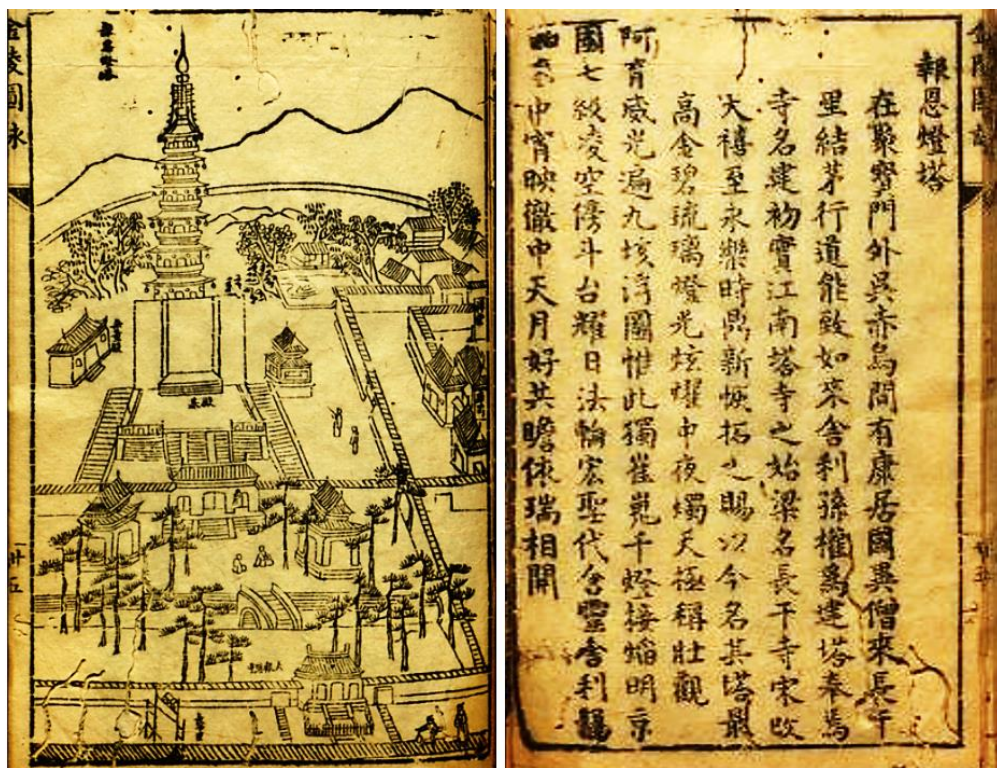 報恩燈塔
在聚寶門外吳赤烏間有康居國異僧來長干
里結茅行道能致如來舍利孫權為建塔奉焉
寺名建初實江南塔寺之始梁名長干寺宋改
天禧至永樂時鼎新恢拓之賜以今名其塔最
高金碧琉璃燈光炫耀中夜燭天極稱壯觀
阿育威光遍九垓浮圖惟此獨崔嵬千燈接焰明京
國七級凌空傍斗台耀日法輪宏聖代含靈舍利
中宵映徹中天月好共瞻依瑞相開
殿基
金陵圖詠
卅五